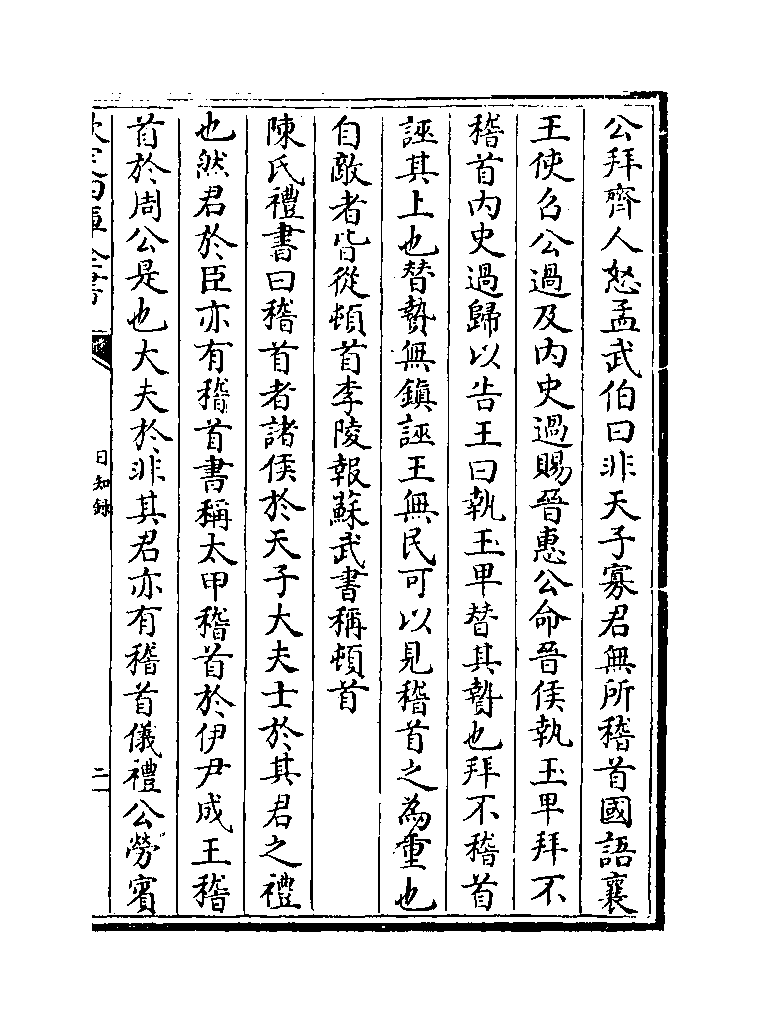 公拜齊人怒孟武伯曰非天子寡君無所稽首國語襄
王使召公過及内史過賜晉惠公命晉侯執玉卑拜不
稽首内史過歸以告王曰執玉卑替其贄也拜不稽首
誣其上也替贄無鎮誣王無民可以見稽首之為重也
自敵者皆從頓首李陵報蘇武書稱頓首
陳氏禮書曰稽首者諸侯於天子大夫士於其君之禮
也然君於臣亦有稽首書稱太甲稽首於伊尹成王稽
首於周公是也大夫於非其君亦有稽首儀禮公勞賓
欽定四庫全書
日知錄
二